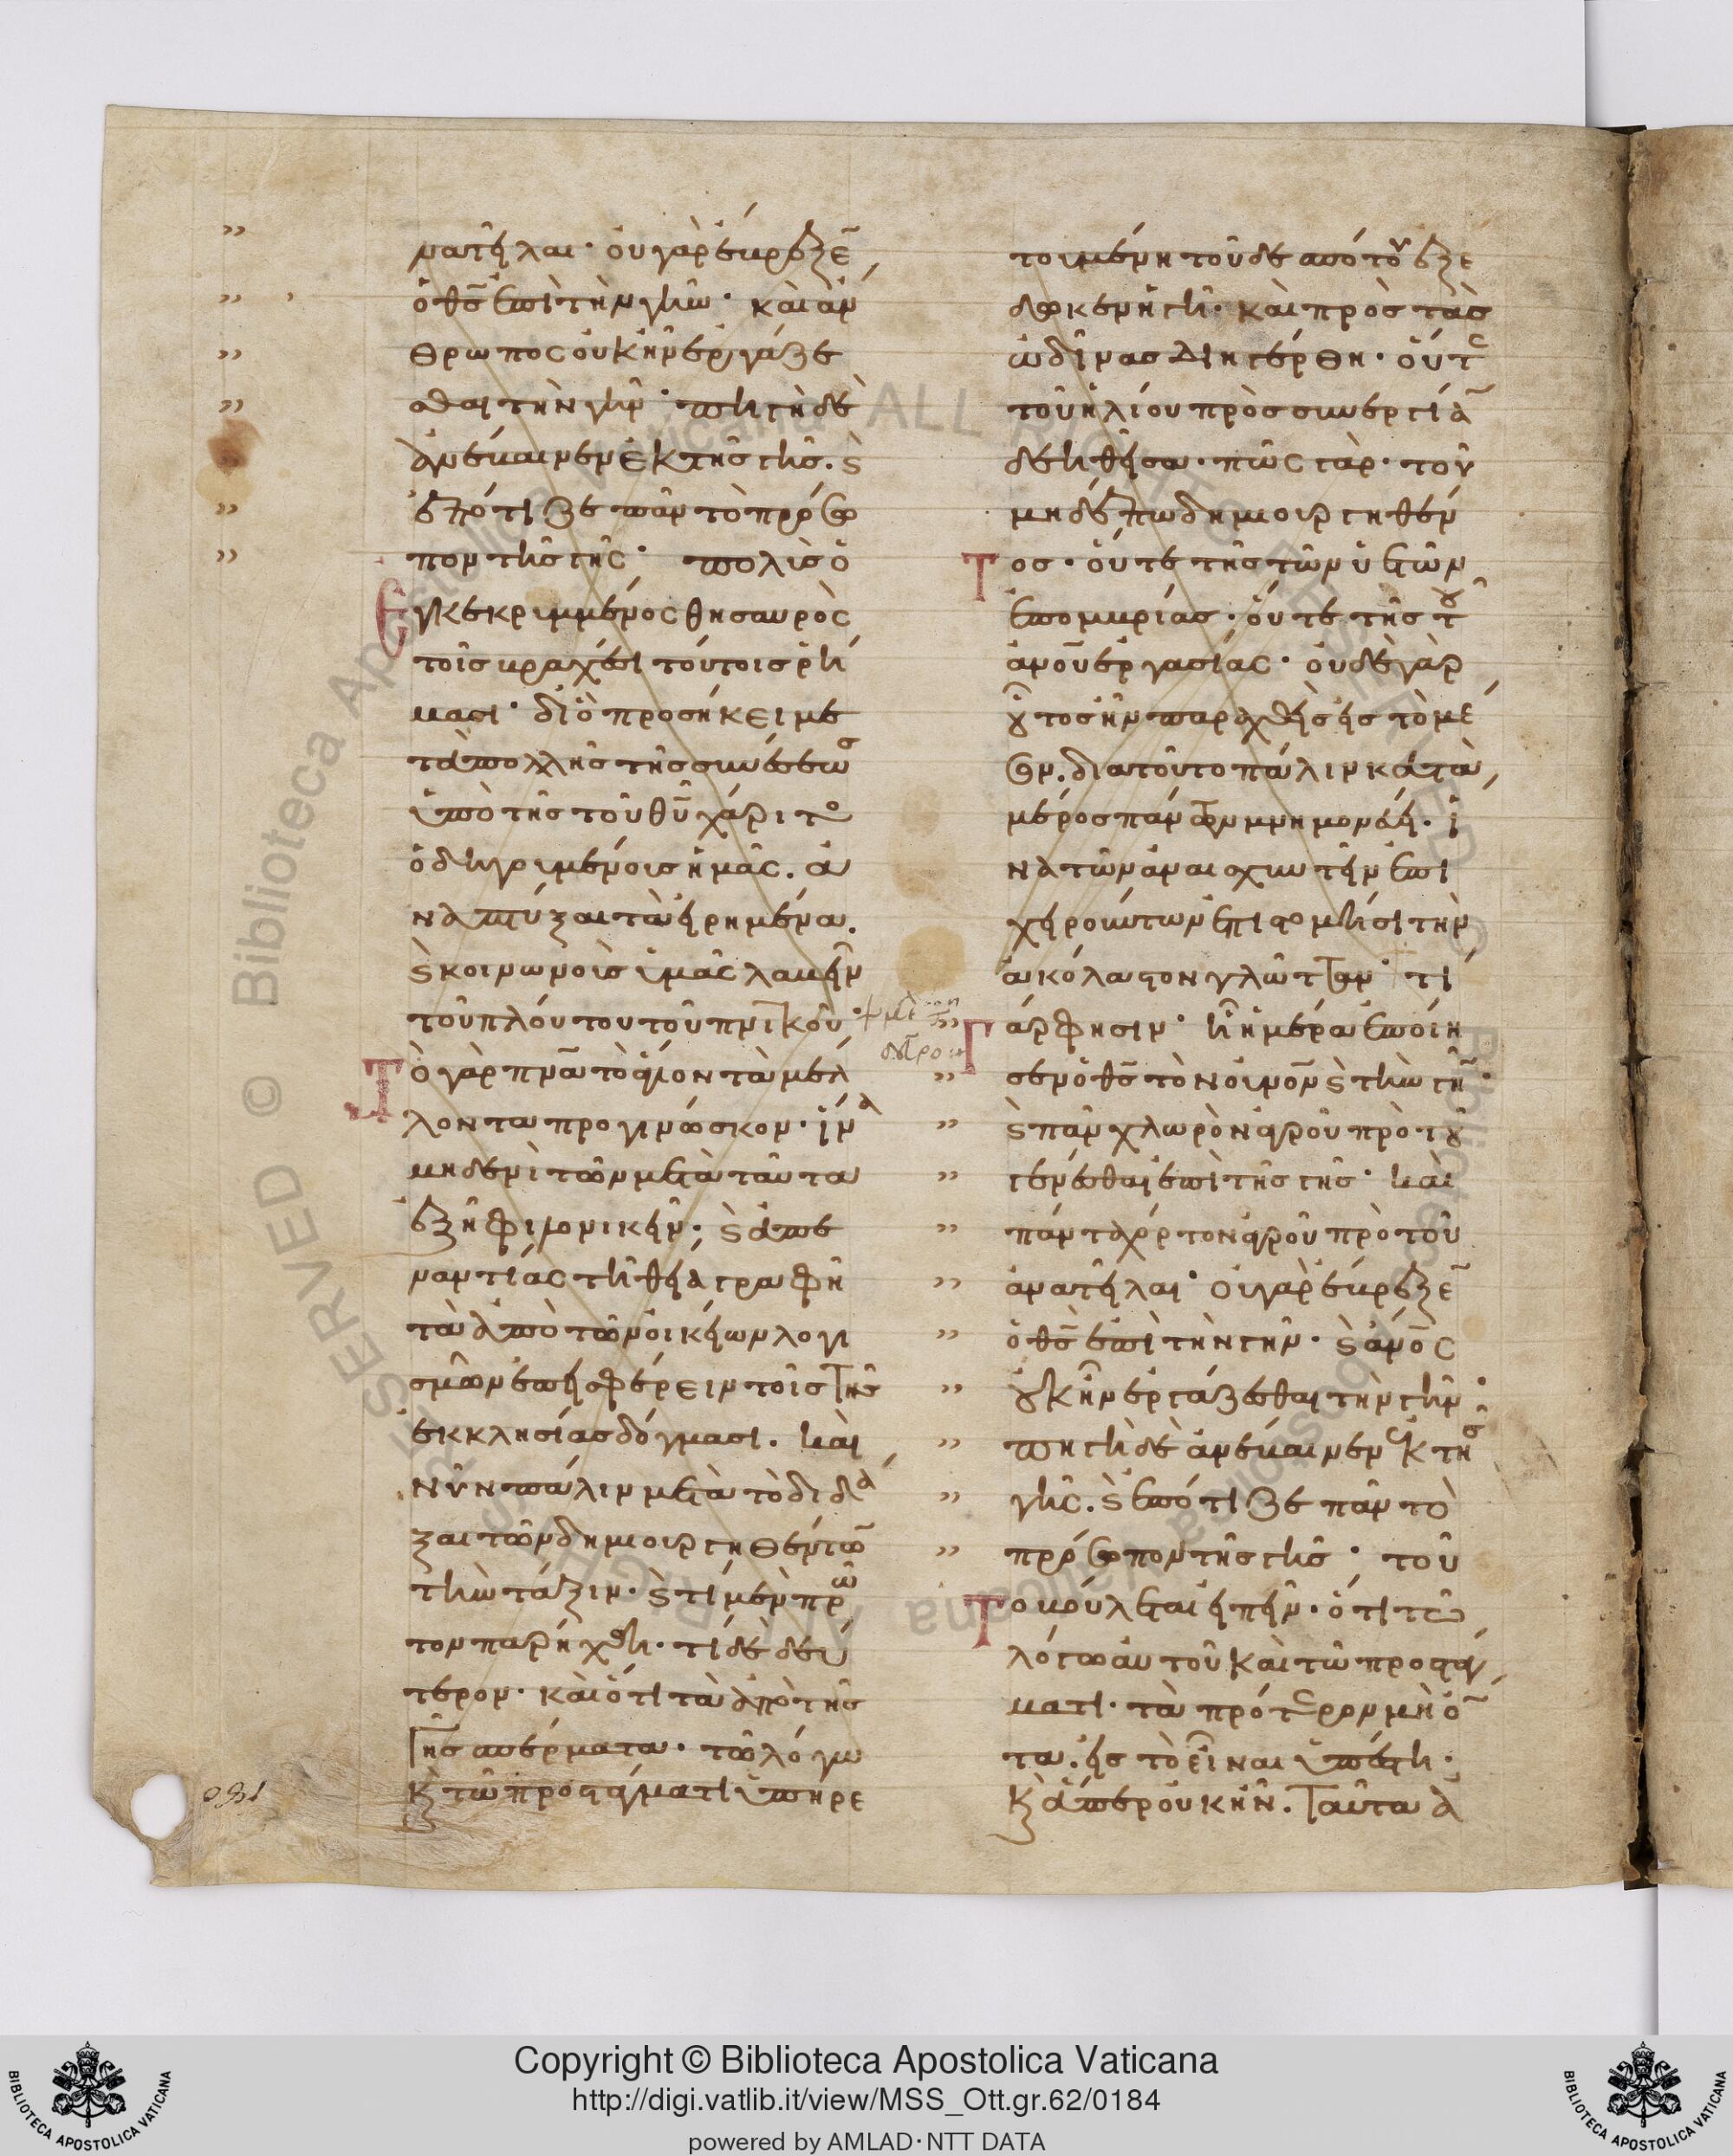 νατεῖλαι· οὐ γὰρ ἔβρεξε̄
ὁ θς̄ ἐπὶ τὴν γῆν· καὶ ἄν
θρωπος οὐκ ἦν ἐργάζε
σθαι τὴν γῆν· πηγὴ δὲ
ἀνέβαινεν ἐκ τῆς γῆς. ϗ
ἐπότιζε πᾶν τὸ πρόσω
πον τῆς γῆς· πολὺς ὁ
ἐγκεκριμμένος θησαυρὸς
τοῖς βραχέσι τούτοις ῥή
μασι· διὸ προσήκει με
τὰ πολλῆς τῆς συνέσεως
ὑπὸ τῆς τοῦ θῦ χάριτο
ὁδηγουμένοις ἡμᾶς. ἀ
ναπτύξαι τὰ εἰρημένα.
ϗ κοινωνοὺς ὑμᾶς λαβεῖν
τοῦ πλούτου τοῦ πνικοῦ·
Τὸ γὰρ πνᾶ τὸ ἅγιον τὰ μέλ
λοντα προγινῶσκον. ἵνα
μηδενὶ τῶν μετὰ ταῦτα
ἐξῆ φιλονικεῖν· ϗ ἀπε
ναντίας τῆ θεία γραφῆ
τὰ ἀπὸ τῶν οἰκείων λογι
σμῶν ἐπεισφέρειν τοῖς τῆς
ἐκκλησίας δόγμασι. καὶ
νῦν πάλιν μετὰ τὸ διδά
ξαι τῶν δημιουργηθέντω̄
τὴν τάξιν. ϗ τί μὲν πρῶ
τον παρήχθη. τί δὲ δεύ
τερον. καὶ ὅτι τὰ ἀπὸ τῆς
γῆς σπέρματα. τῶ λόγω
ϗ τῶ προστάγματι ὑπηρε
τουμένη τοῦ δεσπότου ἐξε
δωκεν ἡ γῆ. καὶ πρὸς τὰς
ὠδῖνας διηγέρθη. οὔτε
τοῦ ἡλίου πρὸς συνεργίᾱ
δεηθεῖσα. πῶς γάρ. τοῦ
μηδέπω δημιουργηθέν
τος. οὔτε τῆς τῶν ὑετῶν
ἐπομβρίας. οὔτε τῆς τοῦ
ἀνοῦ ἐργασίας. οὐδὲ γὰρ
οὗτος ἦν παραχθεὶς εἰς τὸ μέ
σον. διατοῦτο πάλιν κατὰ
μέρος πάντων μνημονεύει. ἵ
να τῶν ἀναισχυντεῖν ἐπι
χειρούντων ἐπιστομήση τὴν
ἀκόλαστον γλῶτταν· τί
γάρ φησιν· ἧ ἡμέρα ἐποίη
σεν ὁ θς̄ τὸν οὐνο̄ν ϗ τὴν γῆ̄·
ϗ πᾶν χλωρὸν ἀγροῦ πρὸ τοῦ
γενέσθαι ἐπὶ τῆς γῆς· καὶ
πάντα χόρτον ἀγροῦ πρὸ τοῦ
ἀνατεῖλαι· οὐ γὰρ ἔβρεξε̄
ὁ θς̄ ἐπὶ τὴν γῆν. ϗ ἀνο̄ς
οὐκ ἦν ἐργάζεσθαι τὴν γῆν·
πηγὴ δὲ ἀνέβαινεν ἐκ τῆς
γῆς. ϗ ἐπότιζε πᾶν τὸ
πρόσωπον τῆς γῆς· τοῦ
το βούλεται εἰπεῖν. ὅτι τῶ
λόγω αὐτοῦ καὶ τῶ προστάγ
ματι. τὰ πρότερον μὴ ὄ̄
τα. εἰς τὸ εἶναι ὑπέστη.
ϗ ἅπερ οὐκ ἦν. ταῦτα ἀ
Copyright © Biblioteca Apostolica Vaticana
http://digi.vatlib.it/view/MSS_Ott.gr.62/0184
powered by AMLAD·NTT DATA
BIBLIOTECA APOSTOLICA VATICANA
BIBLIOTECA APOSTOLICA VATICANA